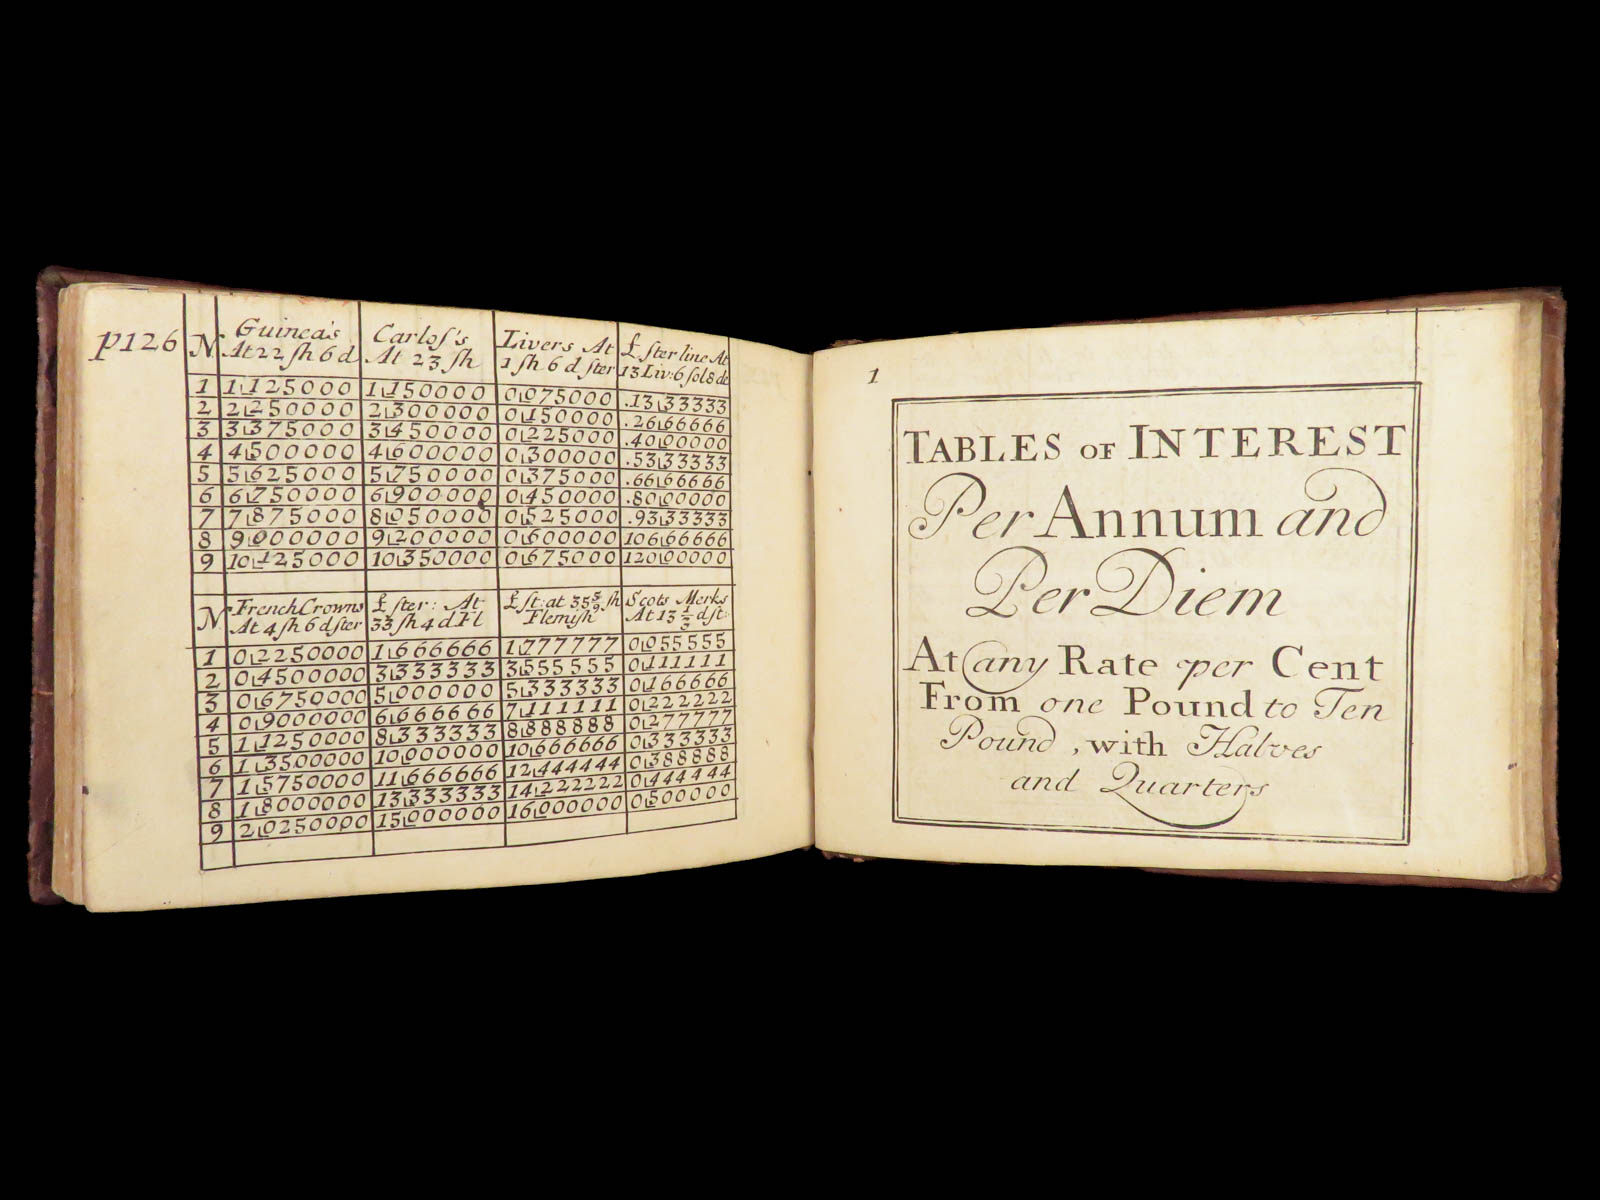 p126
N Guinea's At 22 ſh 6 d Carloſ's At 23 ſh Livers At 1 ſh 6 d ſter £ ſterline At 13 Liv: 6 ſol 8 de
1 1⌊1250000 1⌊1500000 0⌊075000 .13⌊33333
2 2⌊250000 2⌊300000 0⌊150000 .26⌊66666
3 3⌊375000 3⌊450000 0⌊225000 .40⌊00000
4 4⌊500000 4⌊600000 0⌊300000 .53⌊33333
5 5⌊625000 5⌊750000 0⌊375000 .66⌊66666
6 6⌊750000 6⌊900000 0⌊450000 .80⌊00000
7 7⌊875000 8⌊050000 0⌊525000 .93⌊33333
8 9⌊000000 9⌊200000 0⌊600000 106⌊66666
9 10⌊125000 10⌊350000 0⌊675000 120⌊00000
N French Crowns At 4 ſh 6 d ſter £ ſter: At 33 ſh 4 d Fl £ ſt: at 35 5/9 ſh Flemiſh Scots Merks At 13 1/3 d ſt:
1 0⌊2250000 1⌊666666 1⌊777777 0⌊055555
2 0⌊4500000 3⌊333333 3⌊555555 0⌊111111
3 0⌊6750000 5⌊000000 5⌊333333 0⌊166666
4 0⌊9000000 6⌊666666 7⌊111111 0⌊222222
5 1⌊1250000 8⌊333333 8⌊888888 0⌊277777
6 1⌊3500000 10⌊000000 10⌊666666 0⌊333333
7 1⌊5750000 11⌊666666 12⌊444444 0⌊388888
8 1⌊8000000 13⌊333333 14⌊222222 0⌊444444
9 2⌊0250000 15⌊000000 16⌊000000 0⌊500000
1
TABLES OF INTEREST
Per Annum and
Per Diem
At any Rate per Cent
From one Pound to Ten
Pound, with Halves
and Quarters